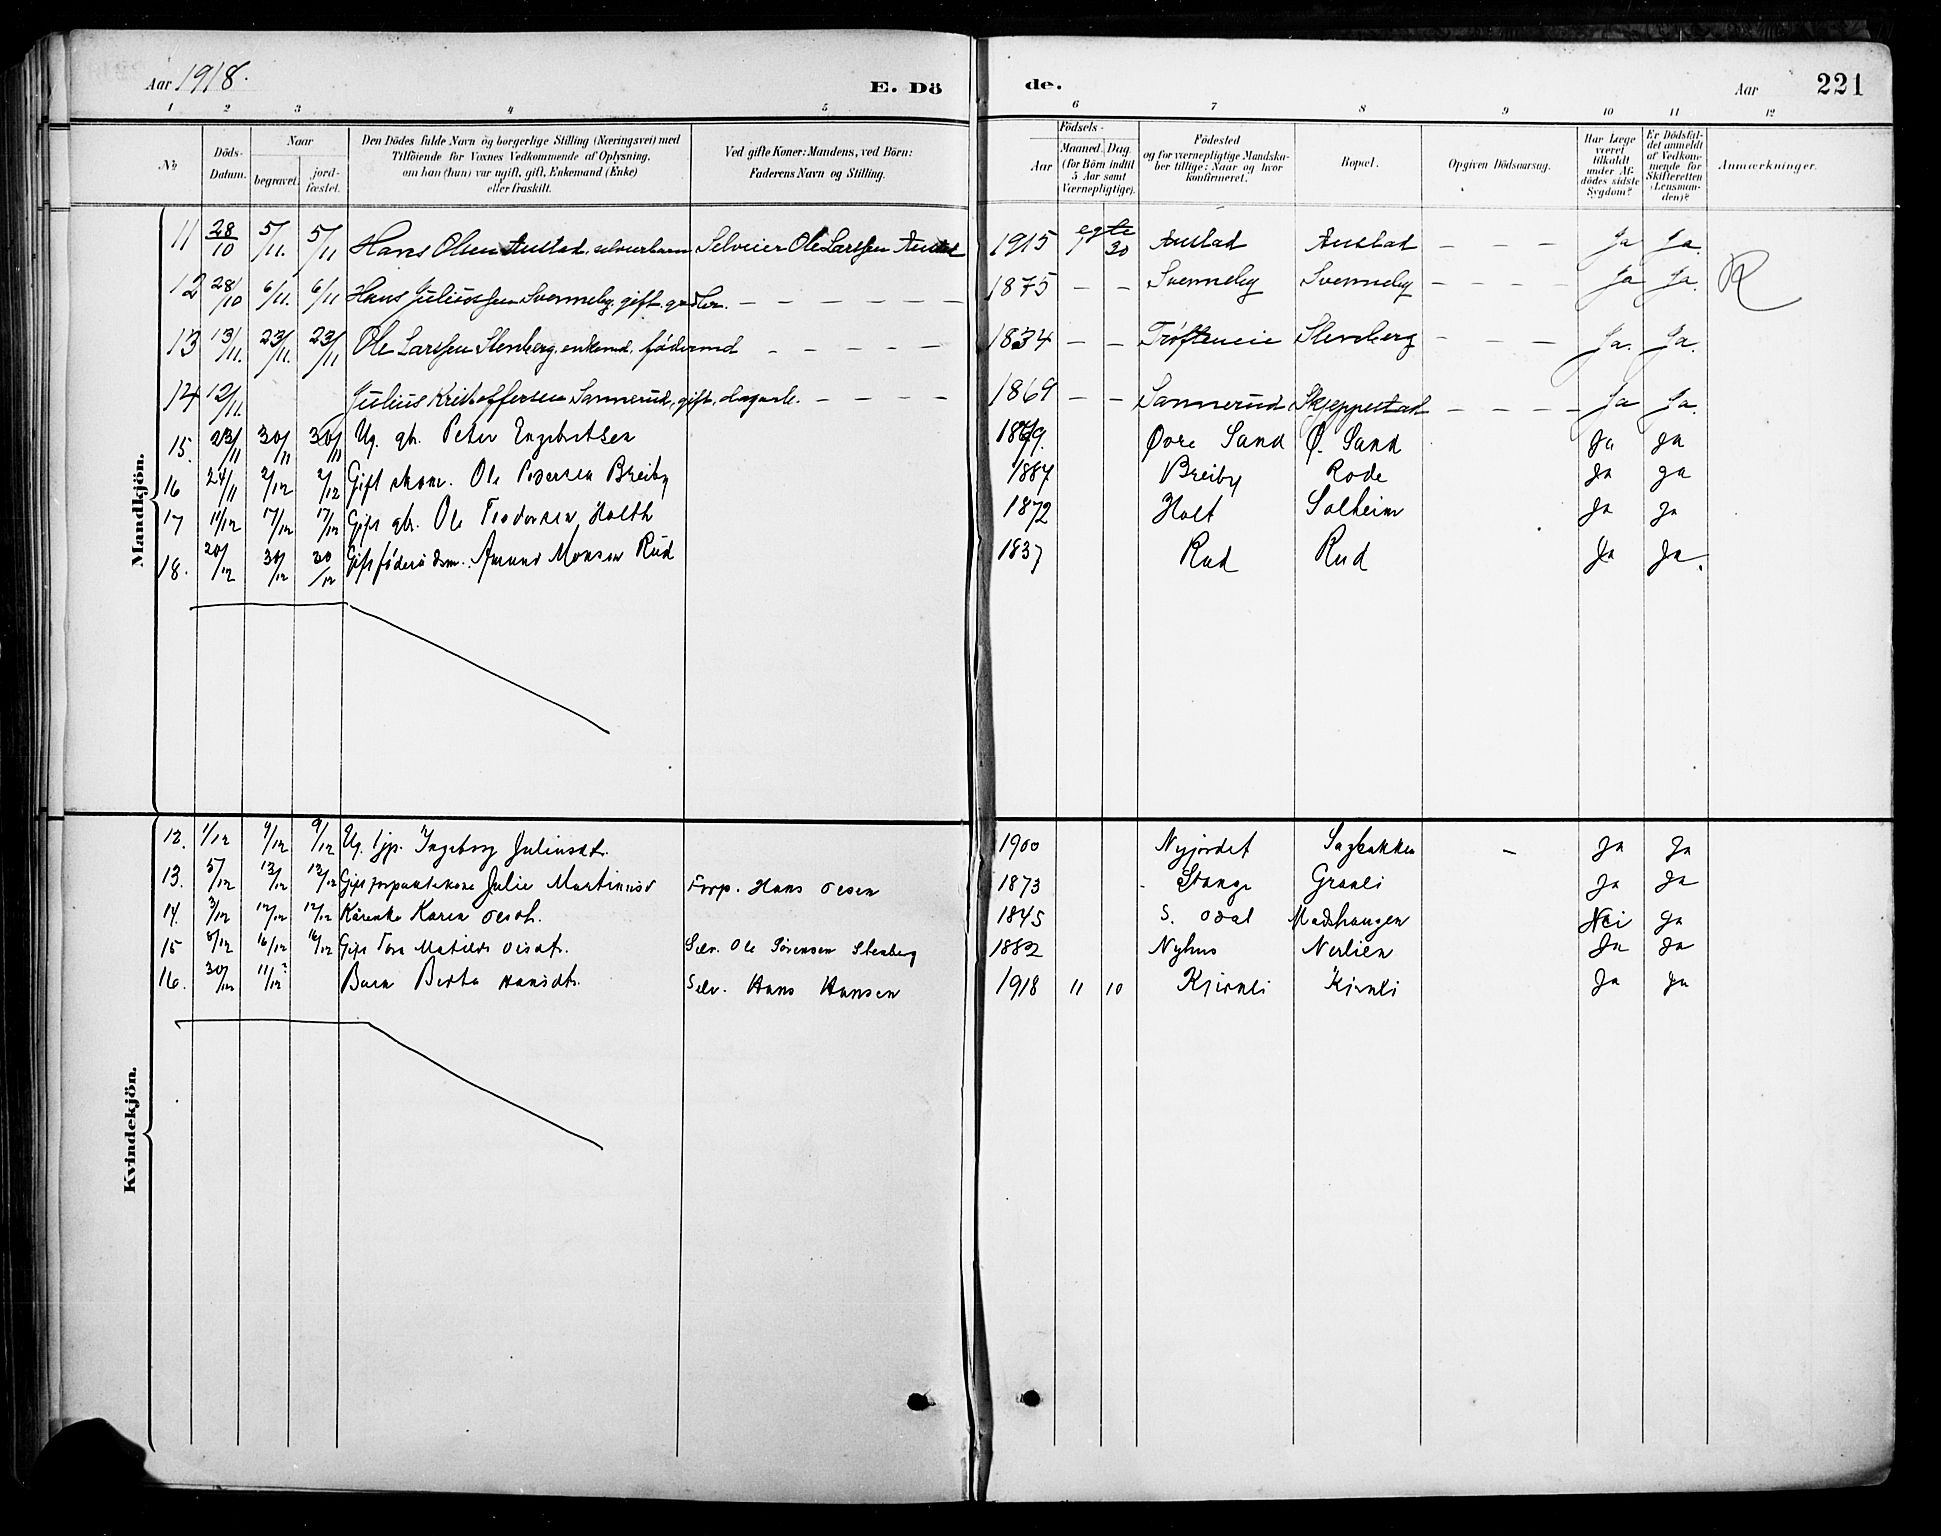 Aar 1918. E. Dö de. Aar 221
1 2 3 4 5 6 7 8 9 10 11 12
No. Döds-Datum. Naar begravet. jord-fæstet. Den Dödes fulde Navn og borgerlige Stilling (Næringsvei) med Tilföiende for Voxnes Vedkommende af Oplysning, om han (hun) var ugift, gift, Enkemand (Enke) eller fraskilt. Ved gifte Koner: Mandens, ved Börn: Faderens Navn og Stilling. Födsels- Aar Maaned. Dag. (for Börn indtil 5 Aar samt Værnepligtige). Födested og for værnepligtige Mandska-ber tillige: Naar og hvor konfirmeret. Bopæl. Opgiven Dödsaarsag. Har Læge været tilkaldt under Af-dödes sidste Sygdom? Er Dödsfal-det anmeldt af Vedkom-mende for Skifteretten (Lensman-den)? Anmærkninger.
Mandkjön.
11 28/10 5/11. 5/11 Hans Olsen Austad, selveierbarn Selveier Ole Larssen Austad 1915 egte 1 30 Austad Austad – – – Ja Ja.
12 28/10 6/11. 6/11 Hans Juliussen Svenneby, gift, – – – – – – 1875 – – Svenneby Svenneby – – – – Ja Ja. R
13 13/11. 23/11. 23/11 Ole Larssen Stenberg, enkemd, føderaadmd – – – – – 1834 – – Trøfteneie Stenberg – – – Ja. Ja.
14 12/11. Julius Kristoffersen Sannerud, gift, dagarb. – – – – 1869 – – Sannerud Skjeppestad – – – – Ja Ja.
15. 23/11 30/11 30/11 Ug. gbr. Peter Engebretsen 1879. Øvre Sand Ø. Sand Ja Ja
16 24/11 2/12 2/12 Gift skom. Ole Pedersen Breiby 1887 Breiby Rode Ja Ja
17 11/12 17/12 17/12 Gift gbr. Ole Teodorsen Holth 1872 Holt Solheim Ja Ja
18. 20/12 30/12 30/12 Gift føderådsm. Amund Monsen Rud 1837 Rud Rud Ja Ja.
Kvindekjön.
12. 1/12 9/12 9/12 Ug. tjp. Ingeborg Juliusdt. 1900 Nyjordet Sagbakken – Ja Ja
13. 5/12 12/12 12/12 Gift forpakterkone Julie Martinusd Forp. Hans Olsen 1873 Stange Granli Ja Ja
14. 3/12 12/12 12/12 Kårenke Karen Olsdt. 1845 S. Odal Madshaugen Nei Ja
15 8/12 16/12 16/12 Gift Tora Matilde Olsdt. Selv. Ole Sørensen Stenberg 1882 Nyhus Nerlien Ja Ja
16. 30/12 11/12? Barn Berta Hansdt. Selv. Hans Hansen 1918 11 10 Kjernli Kjernli Ja Ja